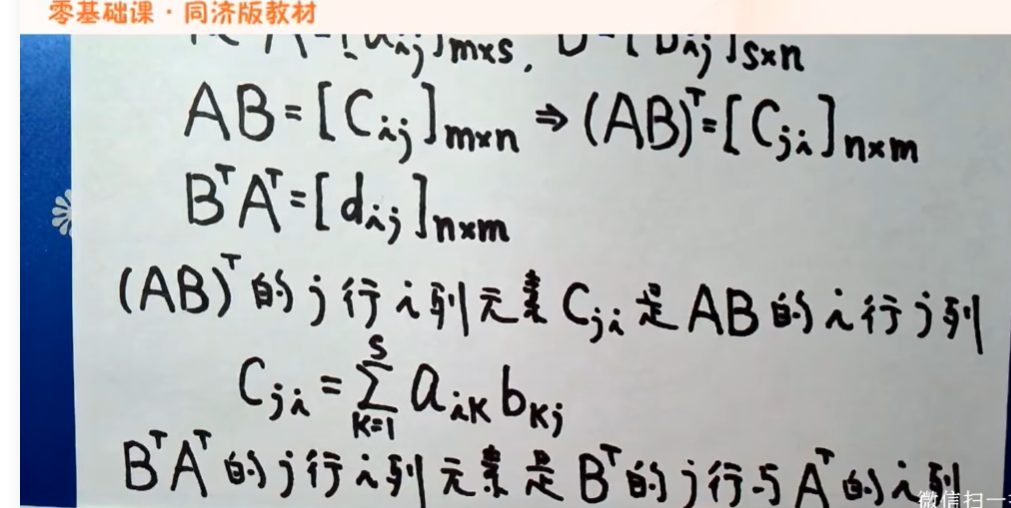 零基础课·同济版教材
A=[aij]m×s, B=[bij]s×n
AB=[Cij]m×n ⇒ (AB)ᵀ=[Cji]n×m
BᵀAᵀ=[dij]n×m
(AB)ᵀ的j行i列元素Cji是AB的i行j列
Cji=∑ˢₖ₌₁ aiK bKj
BᵀAᵀ的j行i列元素是Bᵀ的j行与Aᵀ的i列
微信扫一